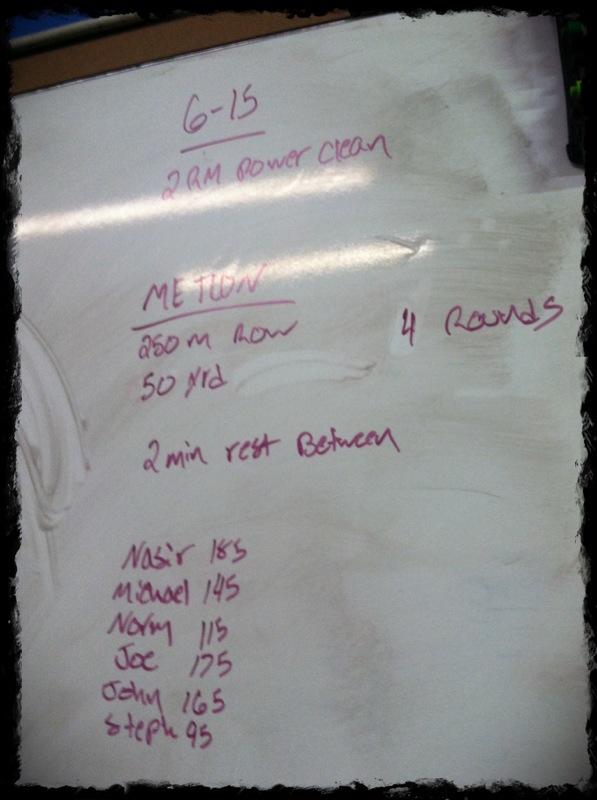 6-15
2 RM Power Clean
METCON
250 m Row
4 Rounds
50 Yrd
2 min rest Between
Nasir 185
Michael 145
Norm 115
Joe 175
John 165
Steph 95